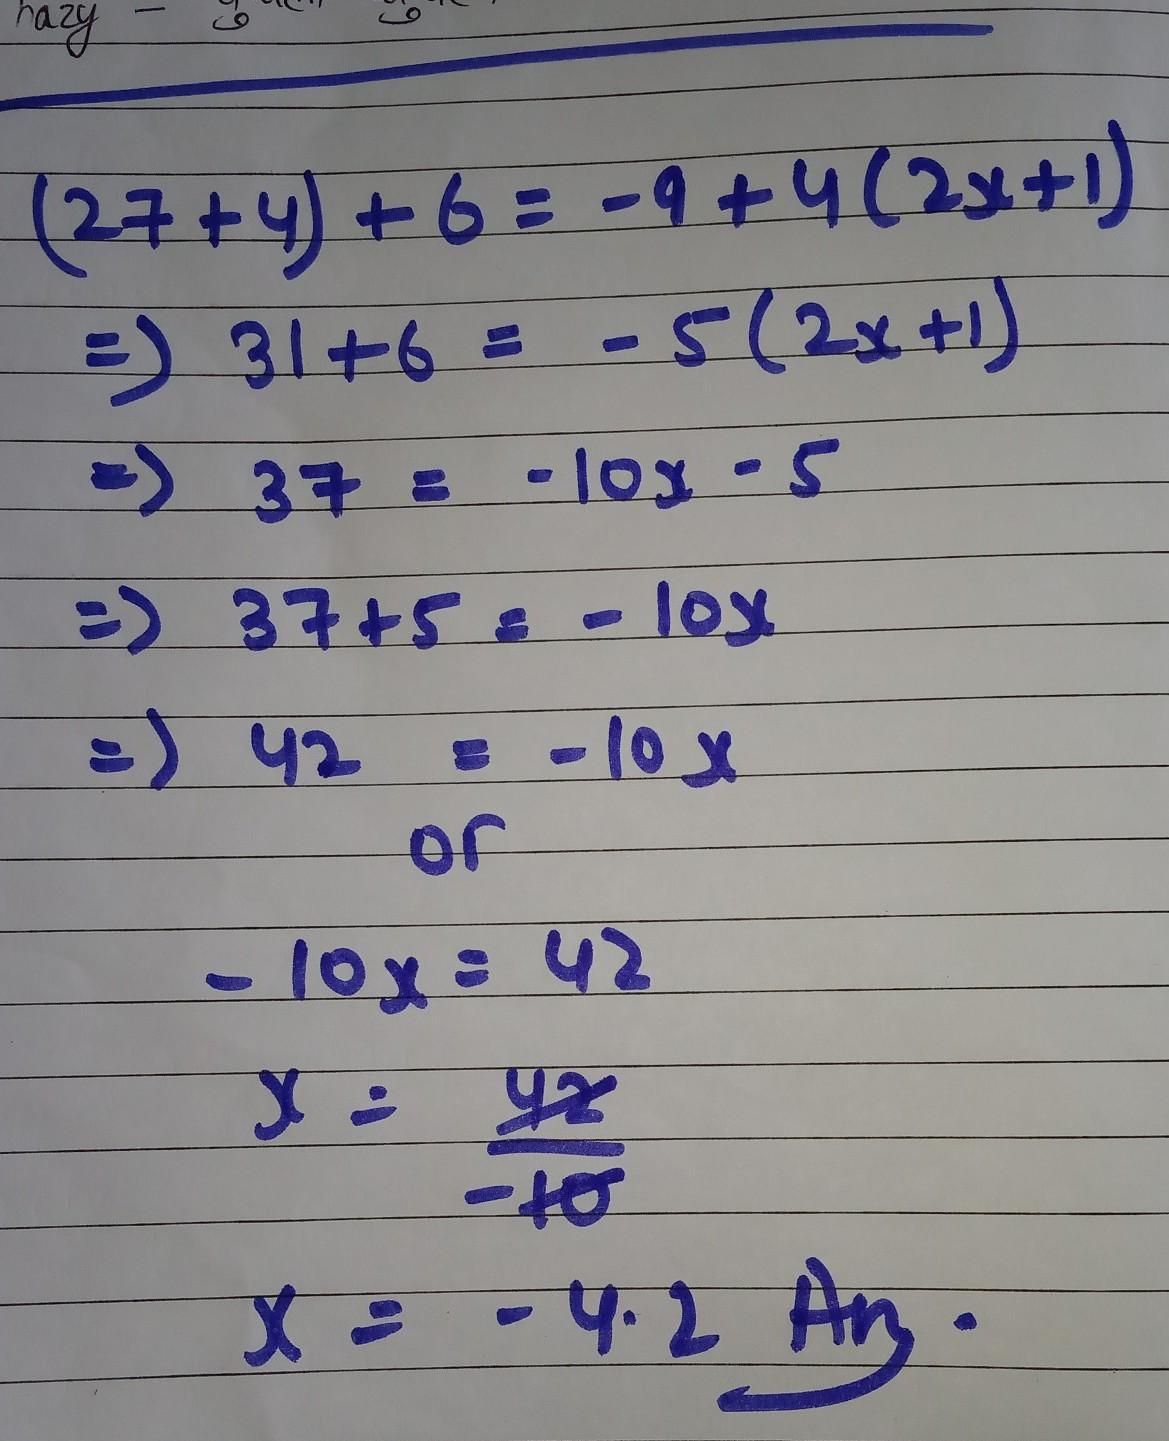 hazy -
(27+4)+6=-9+4(2x+1)
=) 31+6 = -5(2x+1)
=) 37 = -10x-5
=) 37+5 = -10x
=) 42 = -10x
or
-10x = 42
x = 42
-10
x = -4.2 Ans.